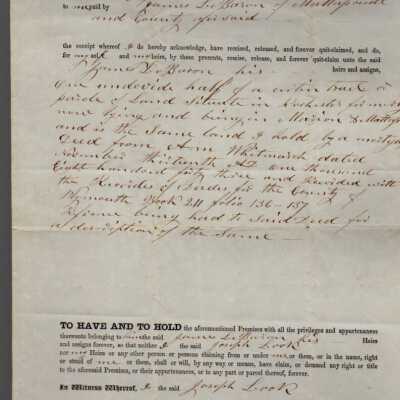 to me paid by James DeBaron of Mattapoisett
and County aforsaid
the receipt whereof I do hereby acknowledge, have received, released, and forever quit-claimed, and do,
for my self and my heirs, by these presents, receive, release, and forever quit-claim unto the said
James DeBaron his heirs and assigns,
One undivide half of a certin tract or
parcle of Land Situate in Rochester formerly
now lying and being in Marion & Mattapoisett
and is the Same land I hold by a mortgage
Deed from Ann Whitmarsh dated
November thirteenth AD one thousand
Eight hundred forty three and Recorded with
the Records of Deeds for the County of
Plymouth Book 211 folio 136-137
Refrence being had to Said Deed for
a description of the Same —
TO HAVE AND TO HOLD the aforementioned Premises with all the privileges and appurtenances
thereunto belonging to the said James DeBaron his Heirs
and assigns forever, so that neither I the said Joseph Look
nor my Heirs or any other person or persons claiming from or under me or them, or in the name, right
or stead of me or them, shall or will, by any way or means, have, claim, or demand any right or title
to the aforesaid Premises, or their appurtenances, or to any part or parcel thereof, forever.
In Witness Whereof, I the said Joseph Look